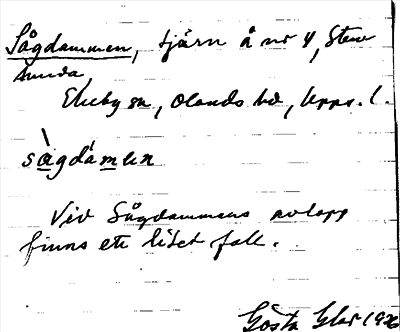 Sågdammen, tjärn å nr 4, Stene
sunda,
Ekeby sn, Olands hd, Upps. l.
sågdámen
Vid Sågdammens avlopp
finns ett litet fall.
Gösta